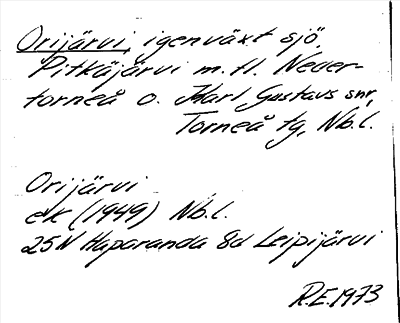 Orijärvi, igenväxt sjö,
Pitkäjärvi m.fl. Neder-
torneå o. Karl Gustavs snr,
Torneå tg, Nb.l.
Orijärvi
ek (1949) Nb.l.
25N Haparanda 8d Leipijärvi
R.E. 1973